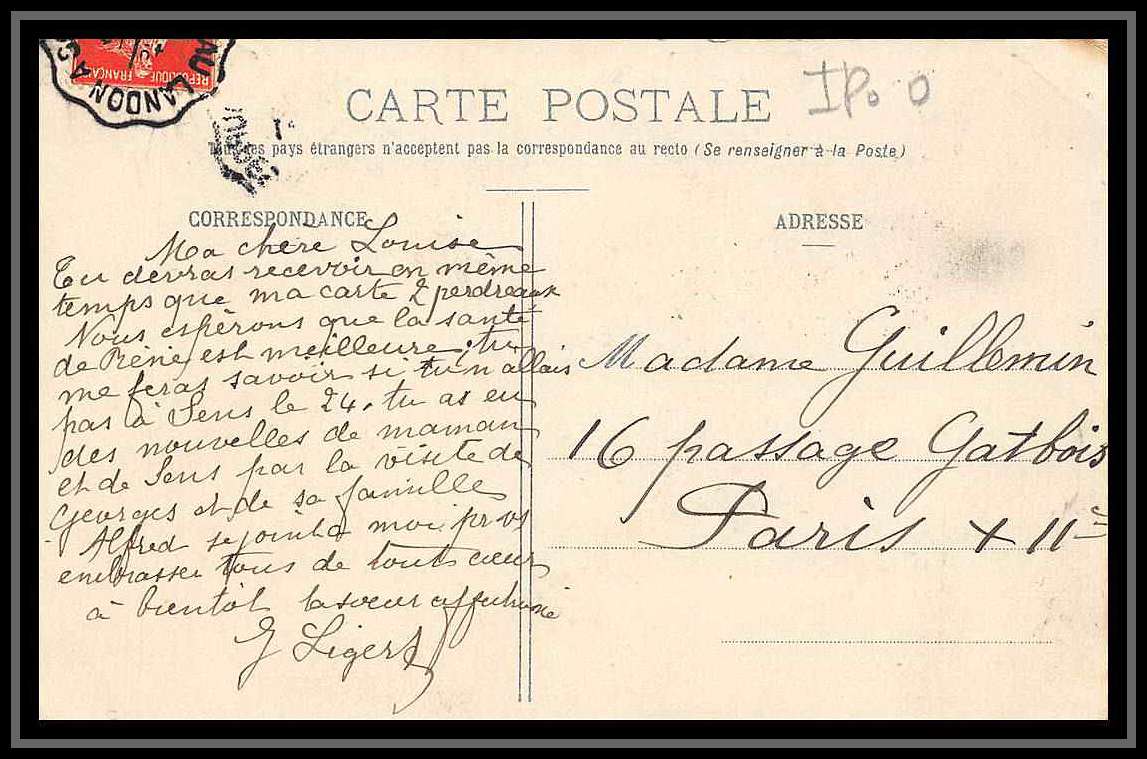 REPUBLIQUE FRANÇAISE
AU LANDON A S
CARTE POSTALE
Tous les pays étrangers n'acceptent pas la correspondance au recto (Se renseigner à la Poste)
CORRESPONDANCE
Ma chère Louise
Tu devras recevoir en même
temps que ma carte 2 perdreaux
Nous espérons que la santé
de René est meilleure, tu
me feras savoir si tu n'allais
pas à Sens le 24. tu as eu
des nouvelles de maman
et de Sens par la visite de
Georges et de sa famille
Alfred se joint à moi pr vs
embrasser tous de tout cœur
à bientôt ta soeur affectionnée
G Ligers
ADRESSE
Madame Guillemin
16 passage Gatbois
Paris XIIe